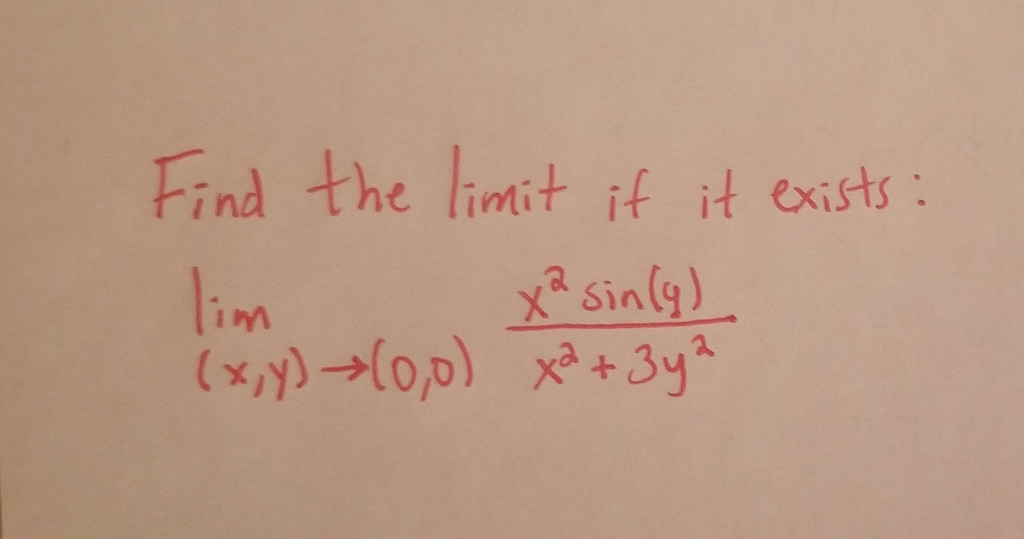 Find the limit if it exists:
lim (x,y)→(0,0) x² sin(y) / x² + 3y²